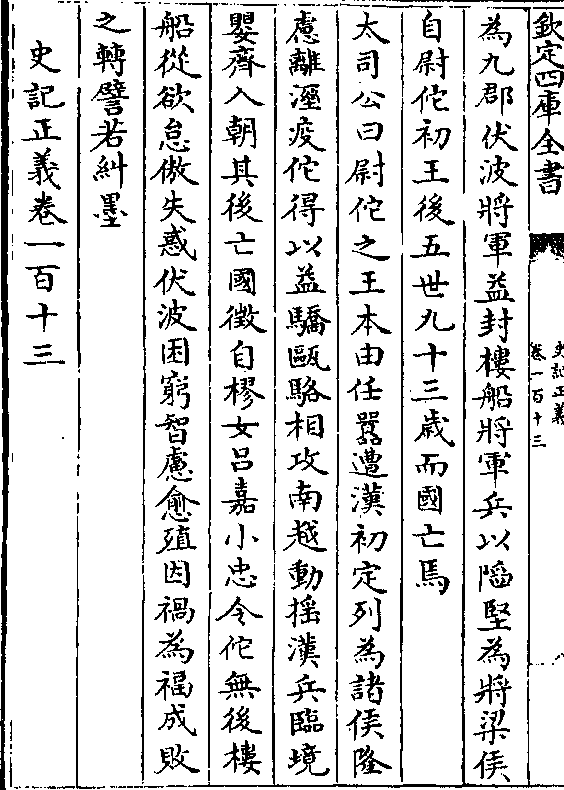 欽定四庫全書
史記正義
卷一百十三
為九郡伏波將軍益封樓船將軍兵以陷堅為將梁侯
自尉佗初王後五世九十三歳而國亡焉
太司公曰尉佗之王本由任囂遭漢初定列為諸侯隆
慮離溼疫佗得以益驕甌駱相攻南越動揺漢兵臨境
嬰齊入朝其後亡國徵自樛女吕嘉小忠令佗無後樓
船從欲怠傲失惑伏波困窮智慮愈殖因禍為福成敗
之轉譬若糾墨
史記正義卷一百十三